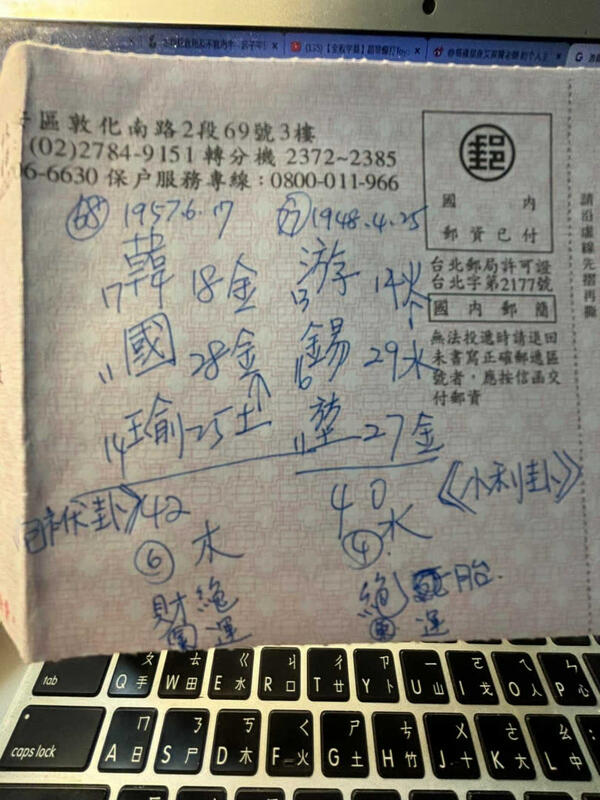 區敦化南路2段69號3樓
(02)2784-9151 轉分機 2372~2385
06-6630 保户服務專線：0800-011-966
郵
國 內
郵資已付
台北郵局許可證
台北字第2177號
國內郵簡
無法投遞時請退回
未書寫正確郵遞區
號者，應按信函交
付郵資
請沿虛線先摺再撕
68 1957.6.17
韓 18金
17
國 28金
11
瑜 25土
14
42
⑥ 木
財 絕
運
1948.4.25
游
13
錫 29水
16
27金
11
40
④ 水
《小利卦》
絕 胎
運
tab
Q 手 ㄆ
W 田 ㄊ
E 水 ㄍ
R 口 ㄐ
T 廿 ㄔ
Y 卜 ㄗ
U 山 ㄧ
I 戈 ㄛ
O 人 ㄟ
P 心 ㄣ
caps lock
A 日 ㄇ
S 尸 ㄋ
D 木 ㄎ
F 火 ㄑ
G 土 ㄕ
H 竹 ㄘ
J 十 ㄨ
K 大 ㄜ
L 中 ㄠ